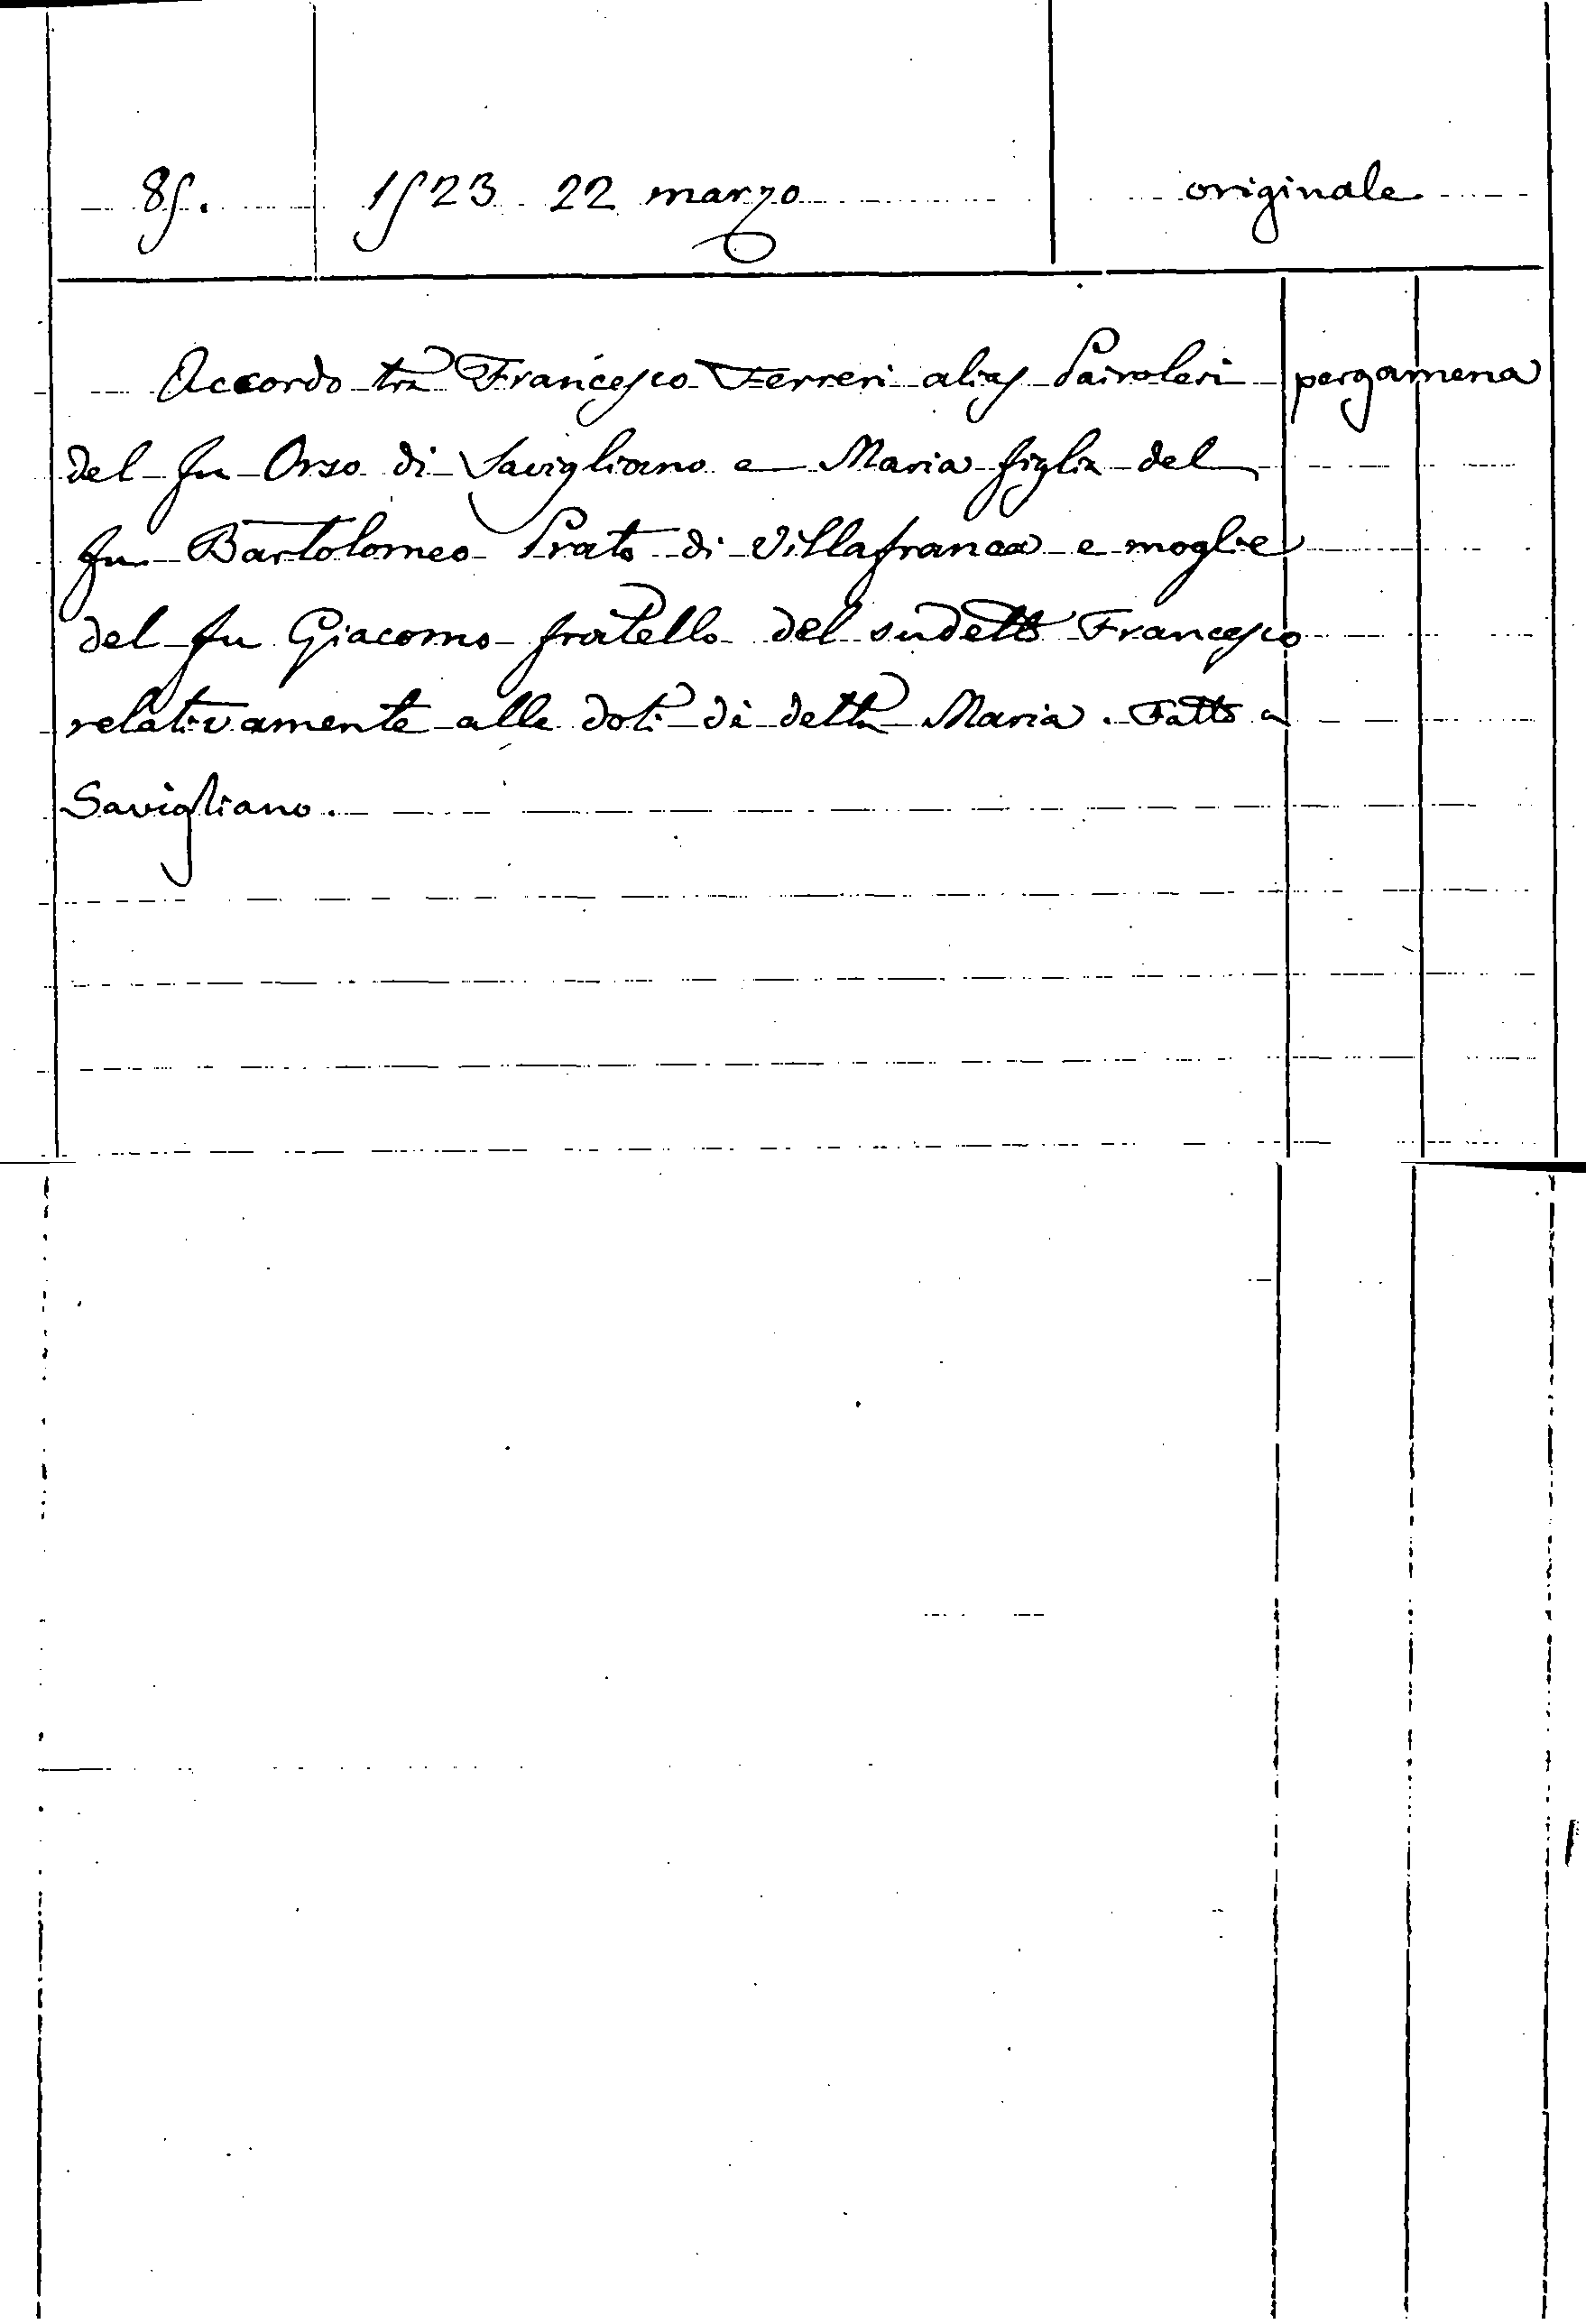 85. 1523 22 marzo originale
Accordo tra Francesco Ferreri alias Pairoleri pergamena
del fu Orso di Savigliano e Maria figlia del
fu Bartolomeo Prato di Villafranca e moglie
del fu Giacomo fratello del sudetto Francesco
relativamente alle doti di detta Maria. Fatto a
Savigliano.